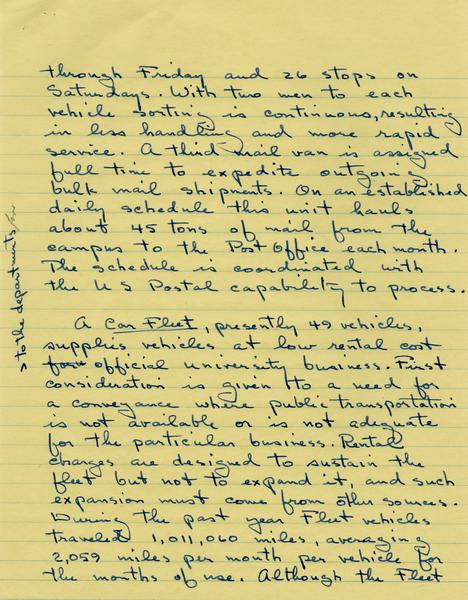 through Friday and 26 stops on
Saturdays. With two men to each
vehicle sorting is continuous, resulting
in less handling and more rapid
service. A third mail van is assigned
full time to expedite outgoing
bulk mail shipments. On an established
daily schedule this unit hauls
about 45 tons of mail from the
campus to the Post Office each month.
The schedule is coordinated with
the US Postal capability to process.
A Car Fleet, presently 49 vehicles,
supplies vehicles at low rental cost
> to the departments for
for official university business. First
consideration is given to a need for
a conveyance where public transportation
is not available or is not adequate
for the particular business. Rental
charges are designed to sustain the
fleet but not to expand it, and such
expansion must come from other sources.
During the past year Fleet vehicles
traveled 1,011,060 miles, averaging
2,059 miles per month per vehicle for
the months of use. Although the Fleet